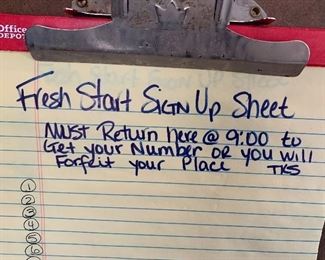 Office
DEPOT
Fresh Start Sign Up Sheet
Must Return here @ 9:00 to
Get your Number or you will
Forfeit your Place TKS
1
2
3
4
5
6